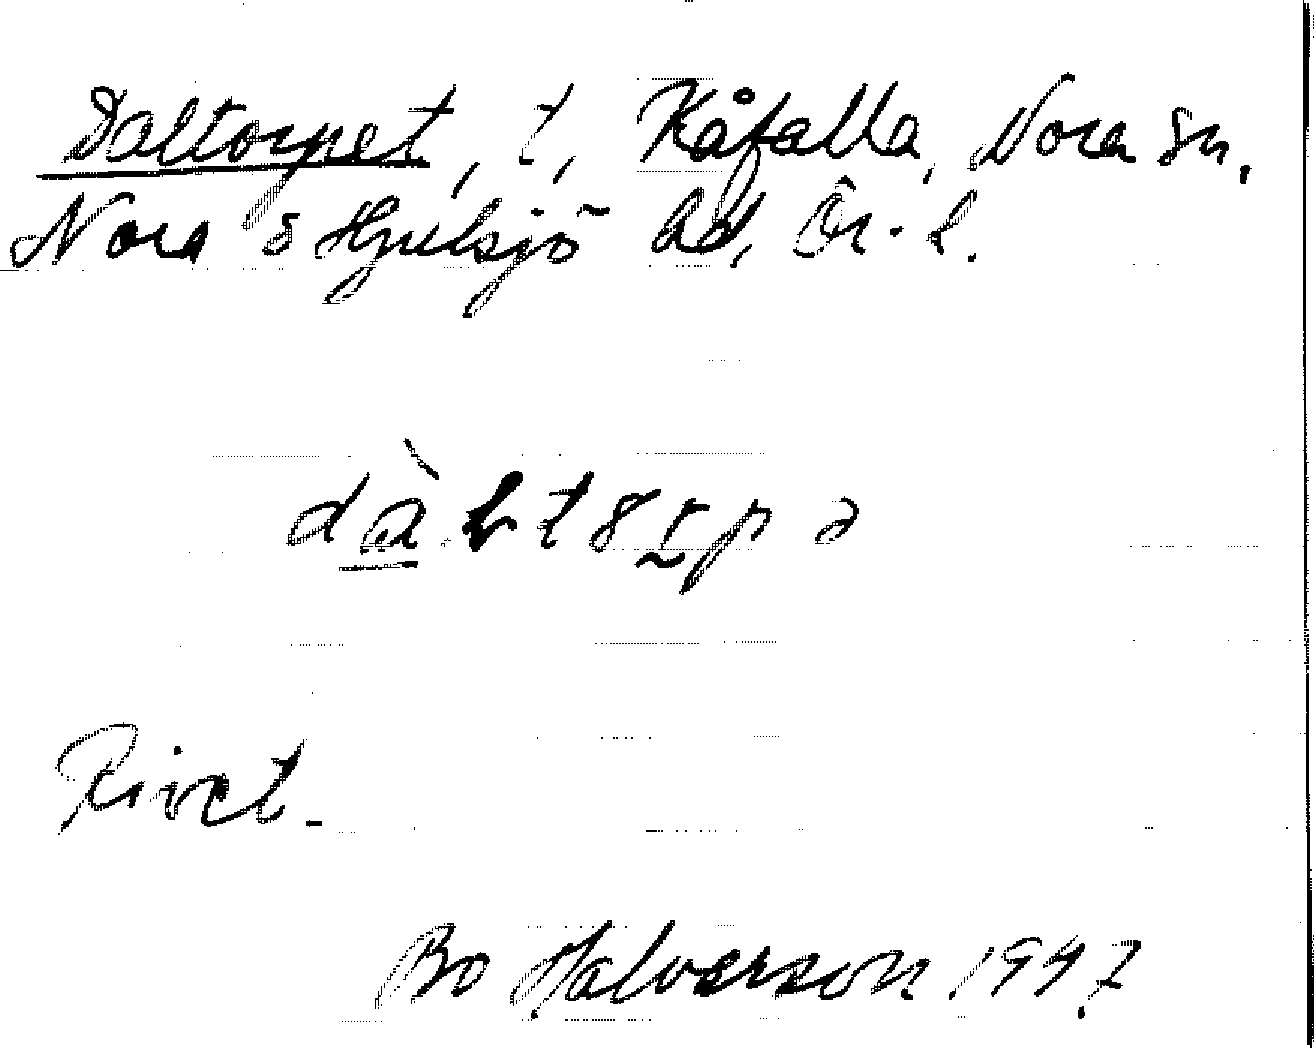 Daltorpet, t, Kåfalla, Nora sn,
Nora o Hjulsjö bd, Ör. l.
Rivet.
Bo Halverson 1947